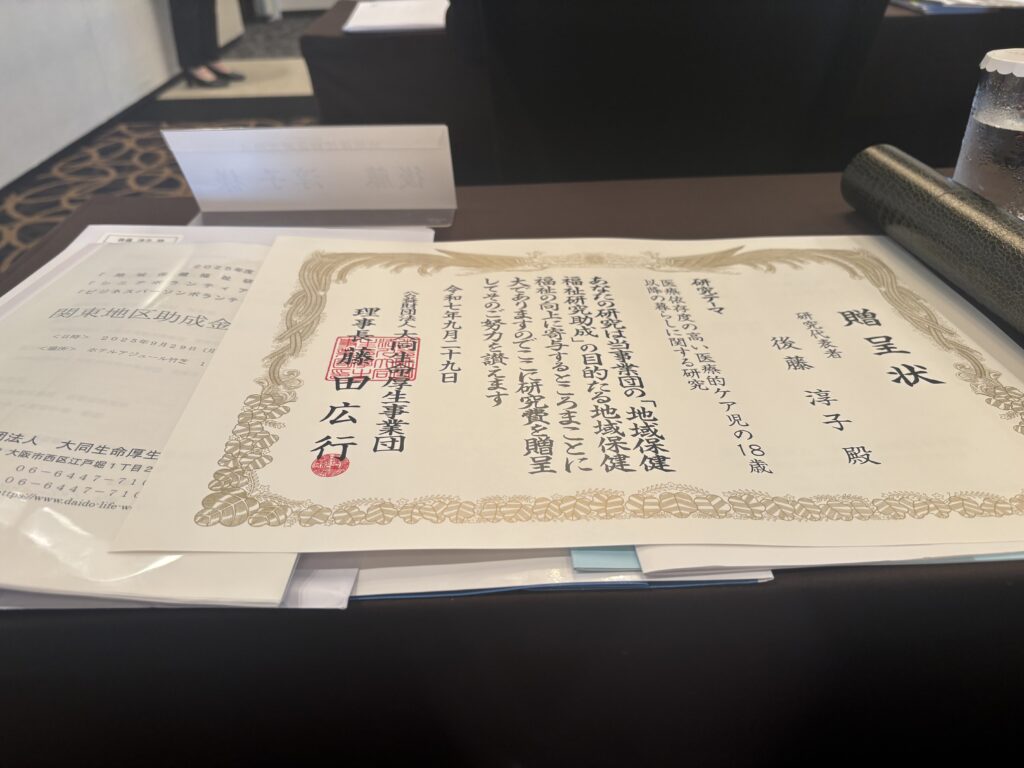 贈呈状
研究代表者
後藤 淳子 殿
研究テーマ
医療依存度の高い医療的ケア児の18歳
以降の暮らしに関する研究
あなたの研究は当事業団の「地域保健
福祉研究助成」の目的たる地域保健
福祉の向上に寄与するところまことに
大でありますのでここに研究費を贈呈
してそのご努力を讃えます
令和七年九月二十九日
公益財団法人 大同生命厚生事業団
理事長 藤田広行
後藤 淳子 様
2025年度
「地域保健福祉研
「シニアボランティ
「ビジネスパーソンボランテ
関東地区助成金
<日時> 2025年9月29日(月
<場所> ホテルアジュール竹芝
団法人 大同生命厚生
大阪市西区江戸堀1丁目2
06-6447-71
06-6447-71
https://www.daido-life-w